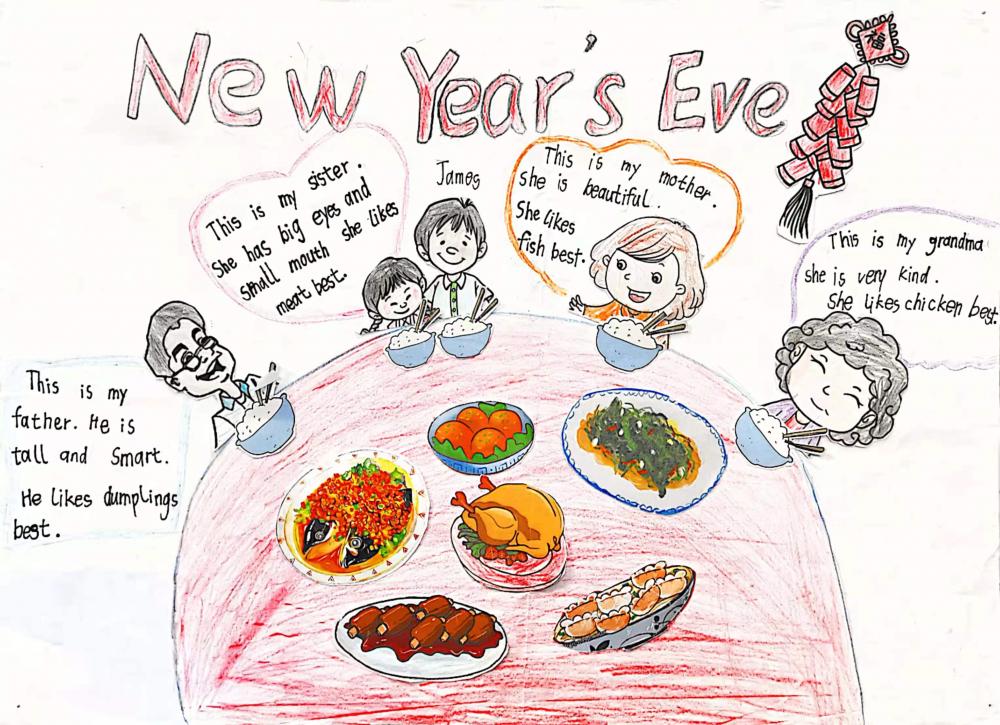 New Year's Eve
福
This is my sister.
She has big eyes and
small mouth she likes
meat best.
James
This is my mother.
she is beautiful.
She likes
fish best.
This is my grandma
she is very kind.
She likes chicken best
This is my
father. He is
tall and Smart.
He likes dumplings
best.